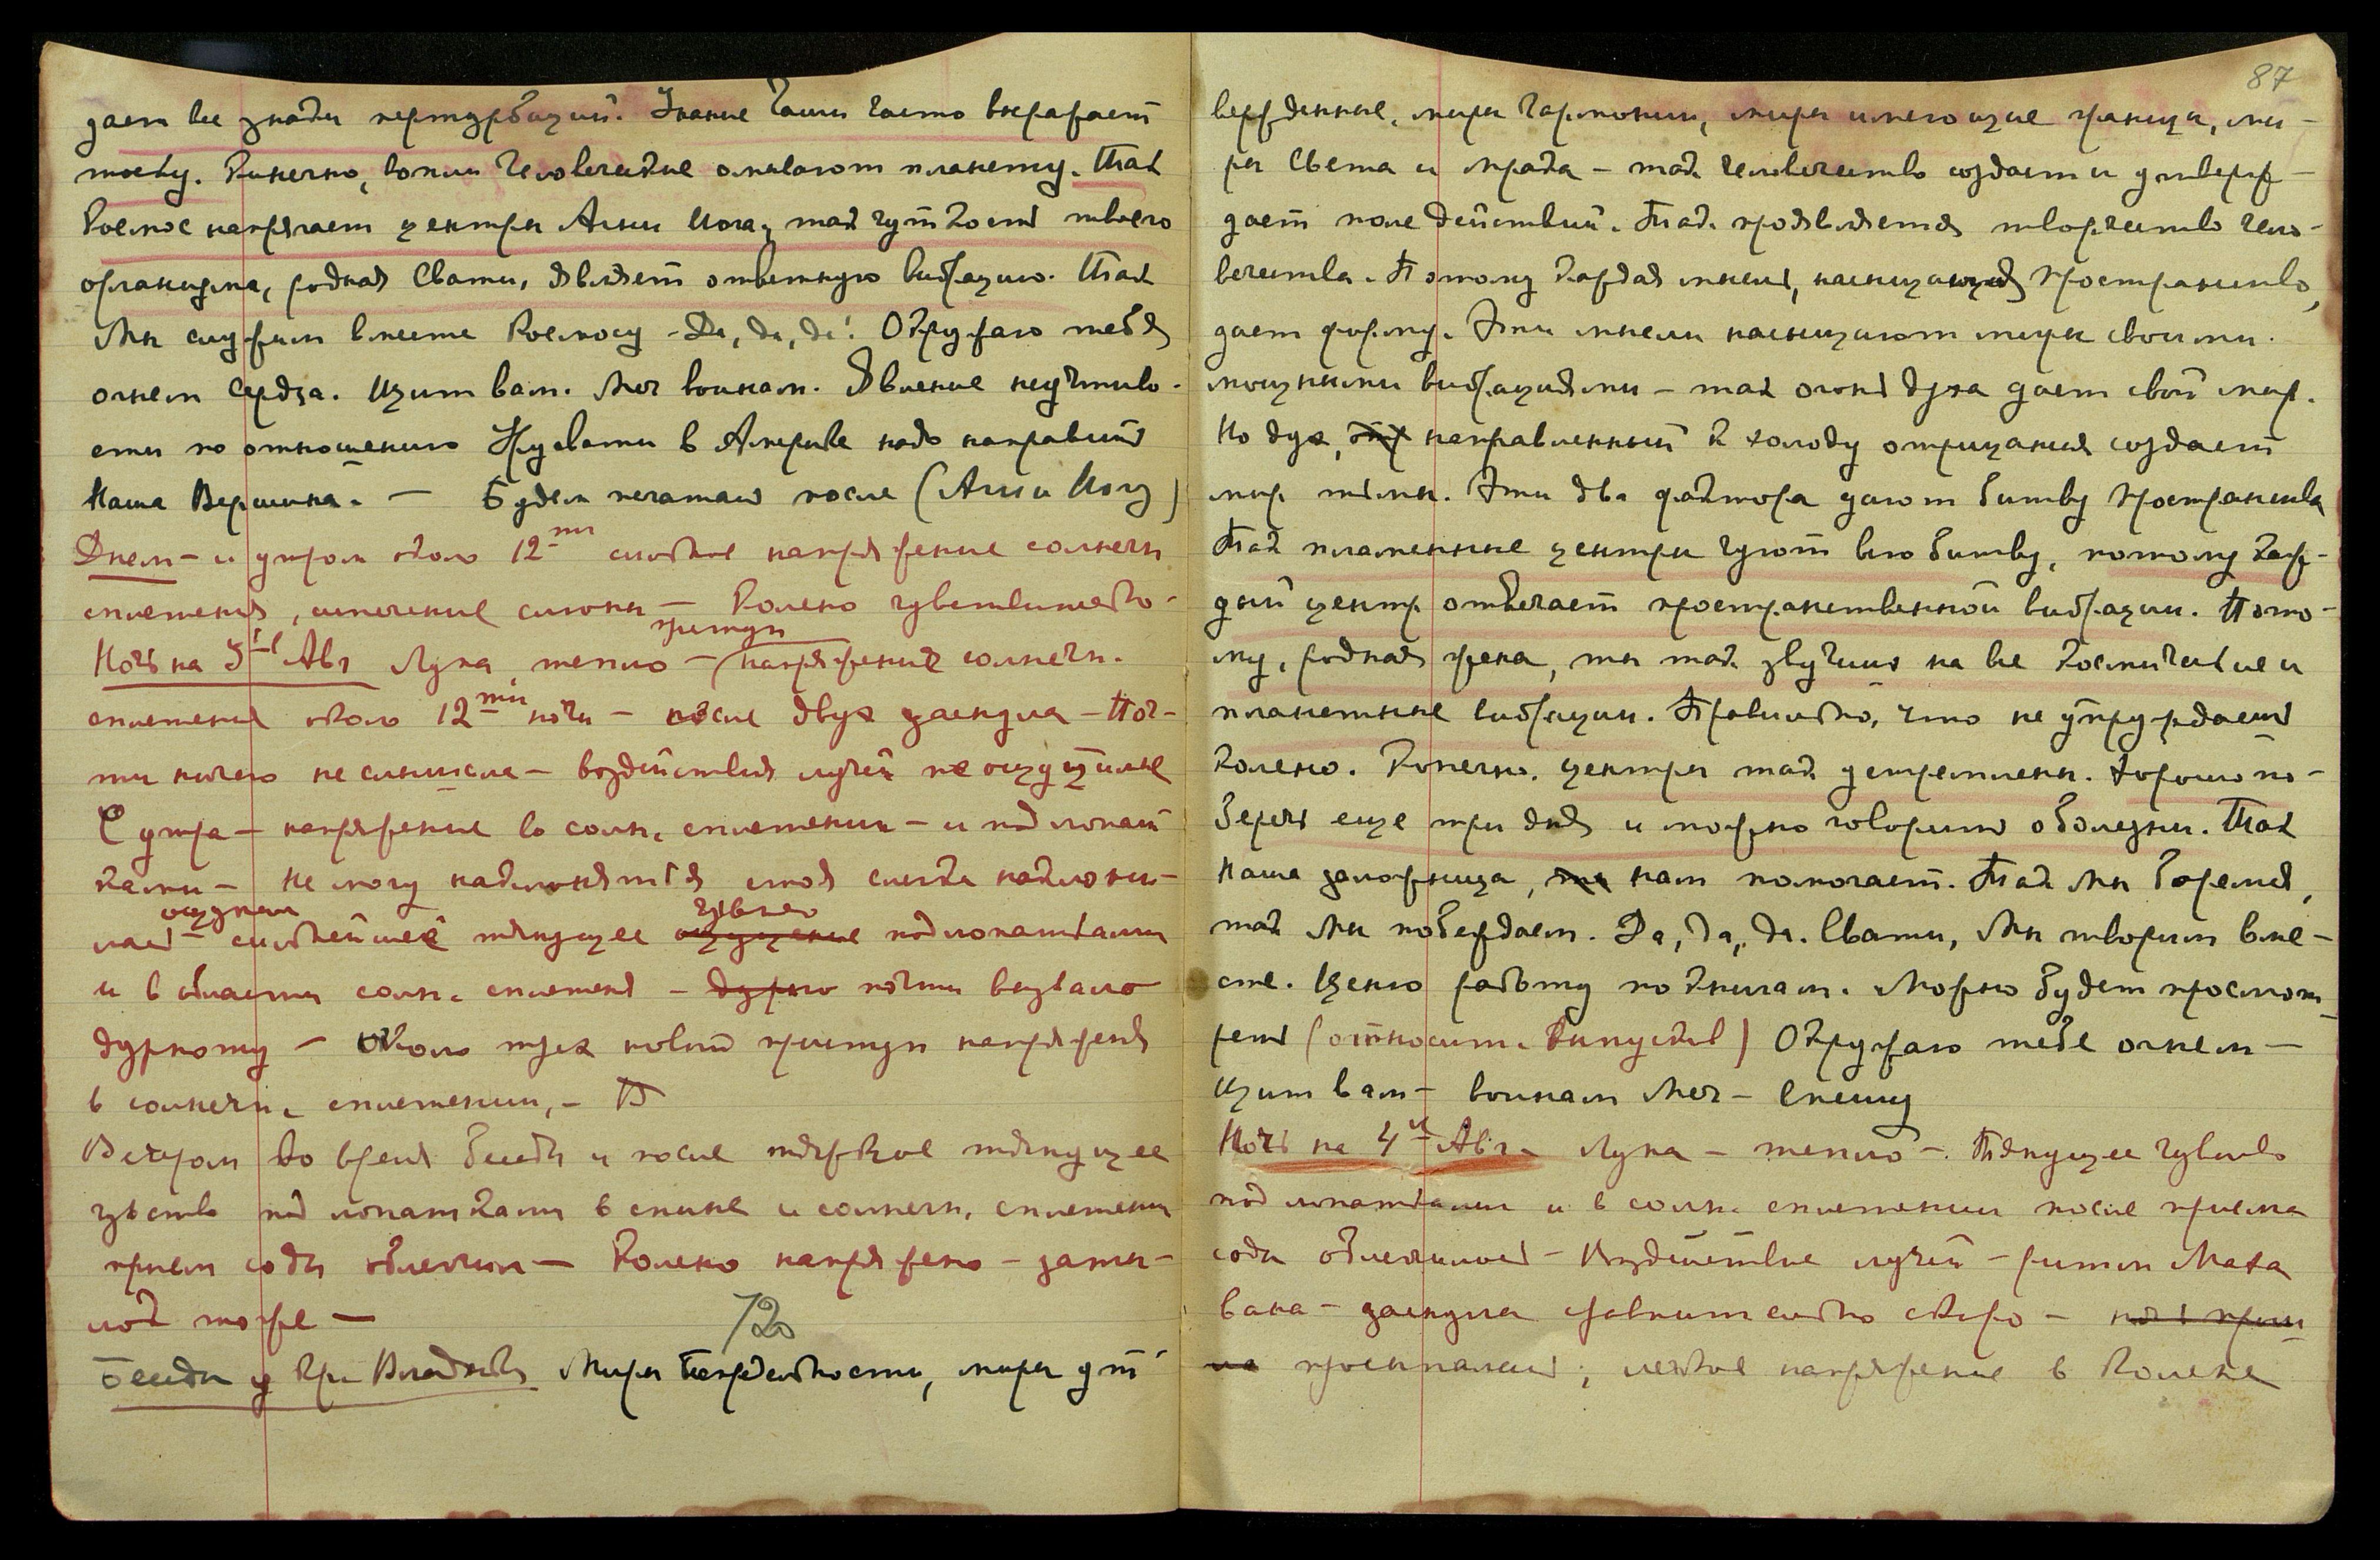 дает все знаки пертурбаций. Знание Чаши часто выражает
тоску. Конечно, вопли человеческие омывают планету. Так
Космос напрягает центры Агни Йога, так чуткость твоего
организма, родная Свати, являет ответную вибрацию. Так
Мы служим вместе Космосу - Да, да, да! Окружаю тебя
огнем сердца. Щит вам. Меч воинам. Явление неучтиво-
сти по отношению в Америке надо направить
Наша Вершина. — Будем печатать после (Агни Йогу)
Днем - и утром около 12ти сильное напряжение солнечн
сплетения, истечение слюны — Колено чувствительно -
приступ
Ночь на 3ье Авг Луна, тепло — напряжение солнечн.
сплетения около 12ти ночи — после двух заснула — Поч-
ти ничего не слышала — воздействия лучей не ощутимые
С утра — напряжение во солн. сплетении — и под лопат
ками — Не могу наклоняться, стоя слегка наклони-
ощущаю чувство
лась - сильнейшее тянущее ощущение под лопатками
и в области солн. сплетения — дурно почти вызвало
дурноту — Около трех новый приступ напряжения
в солнечн. сплетении, —
Вечером во время беседы и после тяжкое тянущее
чувство под лопатками в спине и солнечн. сплетении
прием соды облегчил — Колено напряжено — заты-
лок тоже —
72
Беседа у Вл Миры Беспредельности, миры ут
87
вержденные, миры гармонии, миры имеющие границы, ми-
ры Света и мрака — так человечество создает и утверж-
дает поле действий. Так проявляется творчество чело-
вечества. Потому каждая мысль, насыщающая пространство,
дает форму. Эти мысли насыщают миры своими
мощными вибрациями — так огонь духа дает свой мир.
Но дух, направленный к холоду отрицания создает
мир тьмы. Эти два фактора дают битву пространства
Так пламенные центры чуют всю битву, потому каж-
дый центр отвечает пространственной вибрации. Пото-
му, родная жена, ты так звучишь на все космические и
планетные вибрации. Правильно, что не утруждаешь
колено. Конечно, центры так устремлены. Хорошо по-
беречь еще три дня и можно говорить о болезни. Так
Наша заложница, нам помогает. Так Мы боремся,
так Мы побеждаем. Да, да, да. Свати, Мы творим вме-
сте. Ценю работу по книгам. Можно будет просмот-
реть (относит. выпусков) Окружаю тебя огнем —
Щит вам — воинам Меч — Спешу
Ночь на 4ое Авг. Луна — тепло —. Тянущее чувство
под лопатками и в солн. сплетении после приема
соды облегчилось — Воздействие лучей — ритм Маха
вана — заснула сравнительно скоро —
просыпалась; легкое напряжение в колене